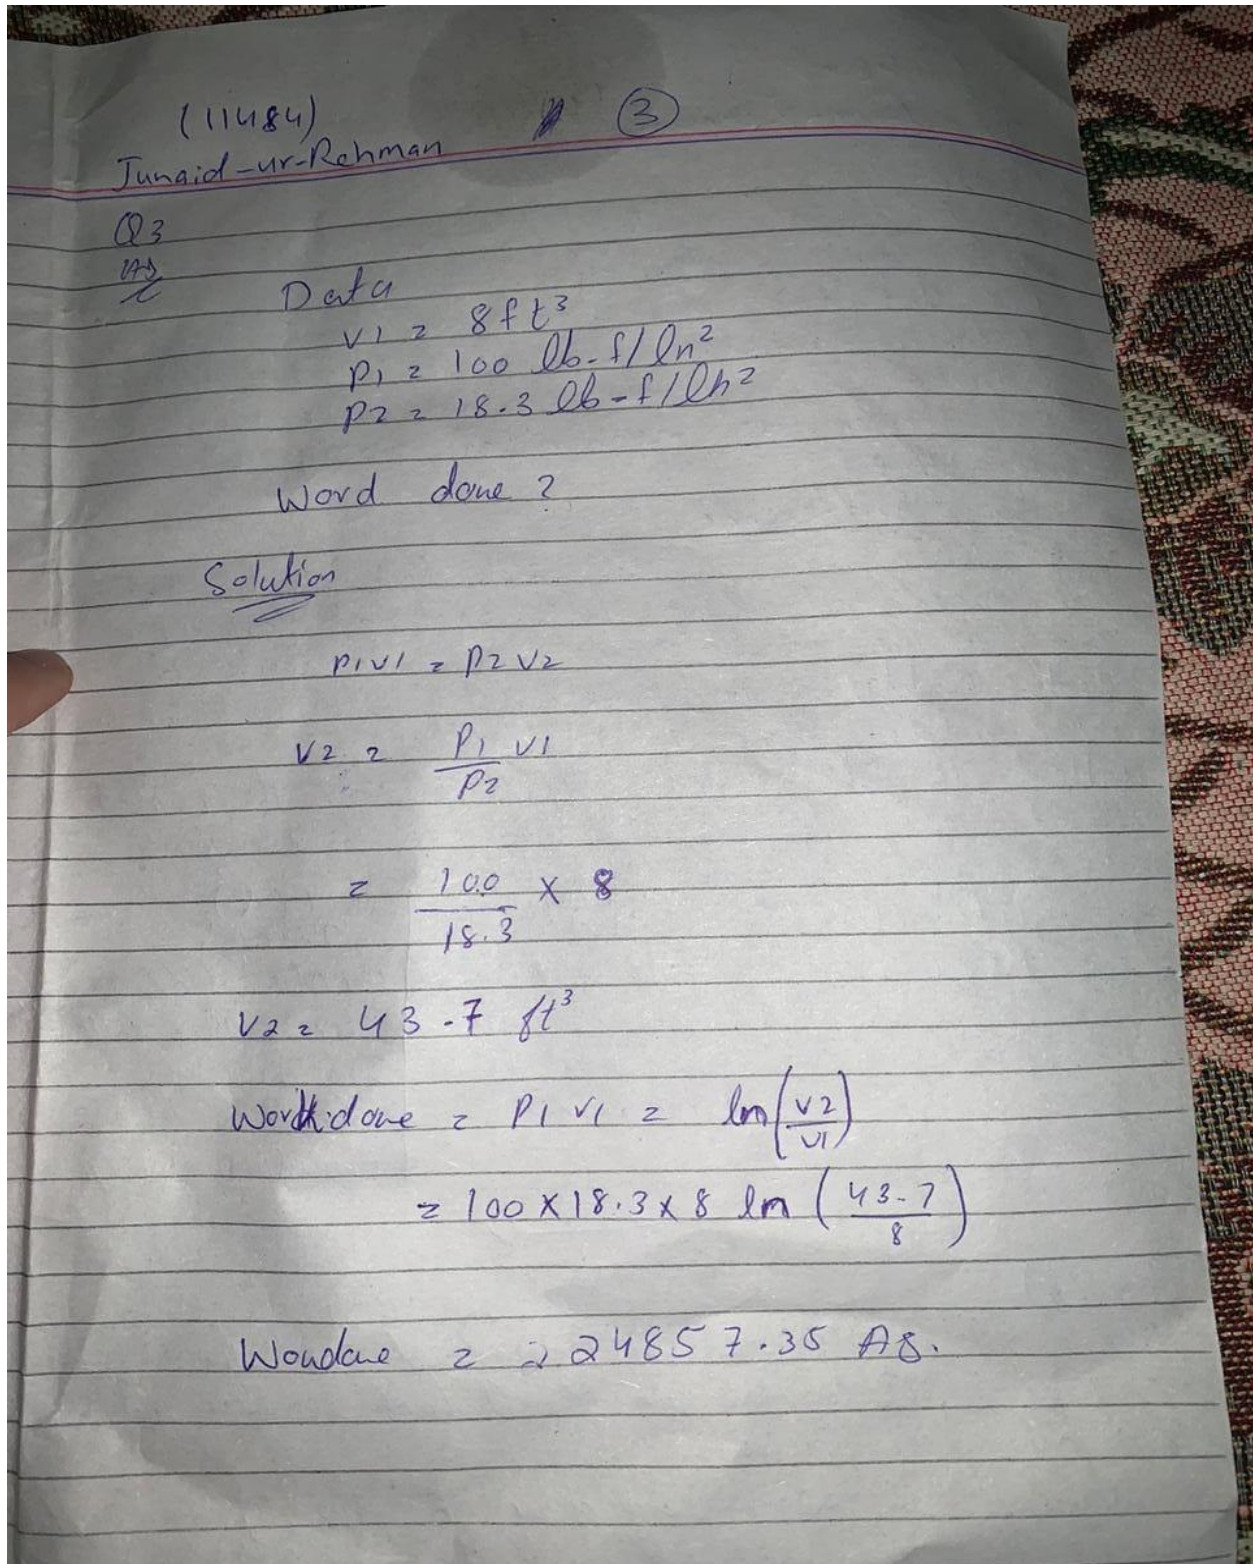 (11484) 3
Junaid-ur-Rehman
Q3
Data
V1 = 8ft³
P1 = 100 lb-f/ln²
P2 = 18.3 lb-f/ln²
Word done ?
Solution
P1V1 = P2V2
V2 = P1/P2 V1
= 100/18.3 × 8
V2 = 43.7 ft³
Work done = P1V1 = ln(V2/V1)
= 100×18.3×8 ln(43.7/8)
= 24857.35